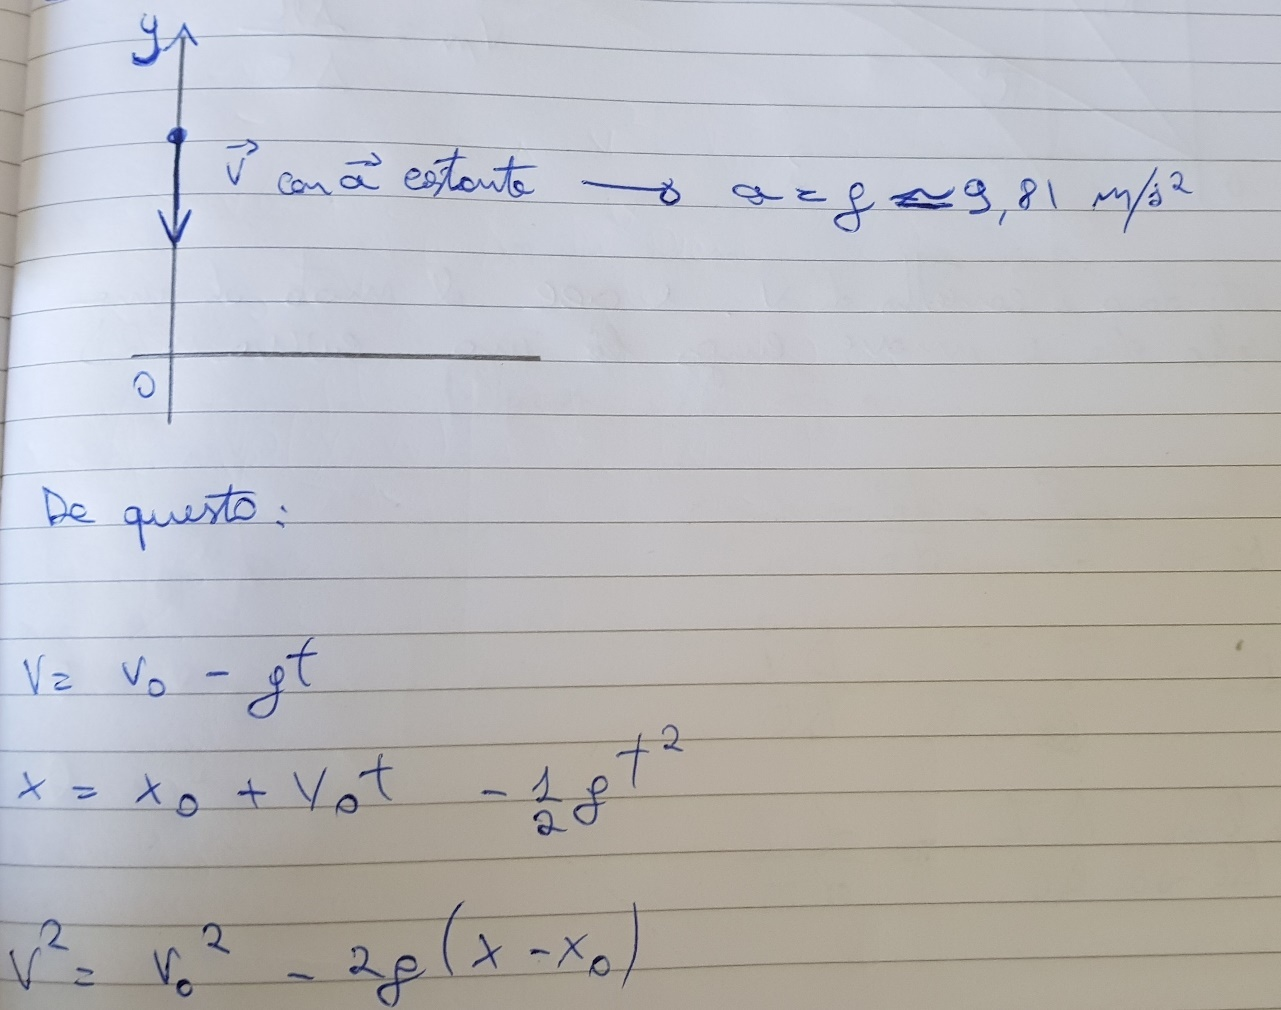 y
v⃗ con a⃗ costante → a = g ≈ 9,81 m/s²
0
Da questo:
v = v₀ - gt
x = x₀ + v₀t - 1/2 gt²
v² = v₀² - 2g(x - x₀)